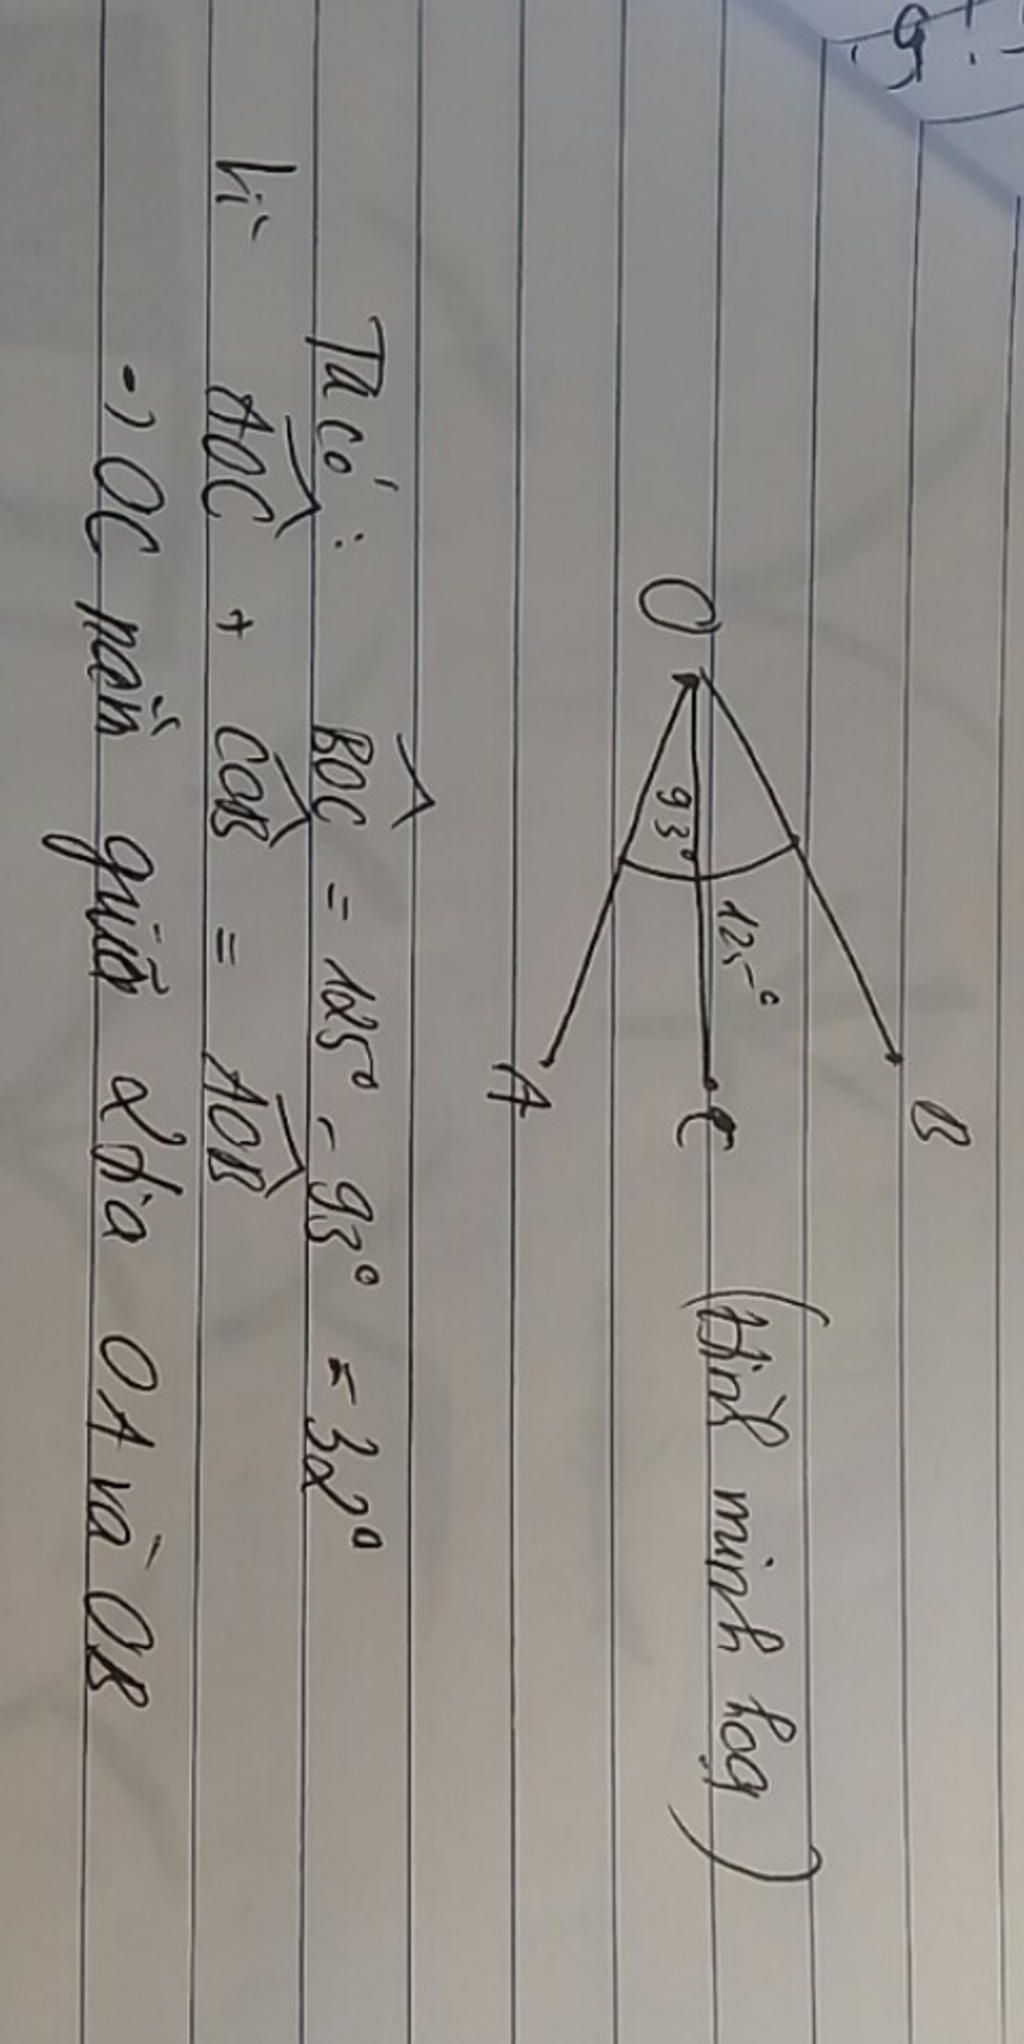 B
O 93° 125° C (Hình minh họa)
A
Ta có: BOC = 125° - 93° = 32°
Vì AOC + COB = AOB
-) OC nằm giữa 2 tia OA và OB